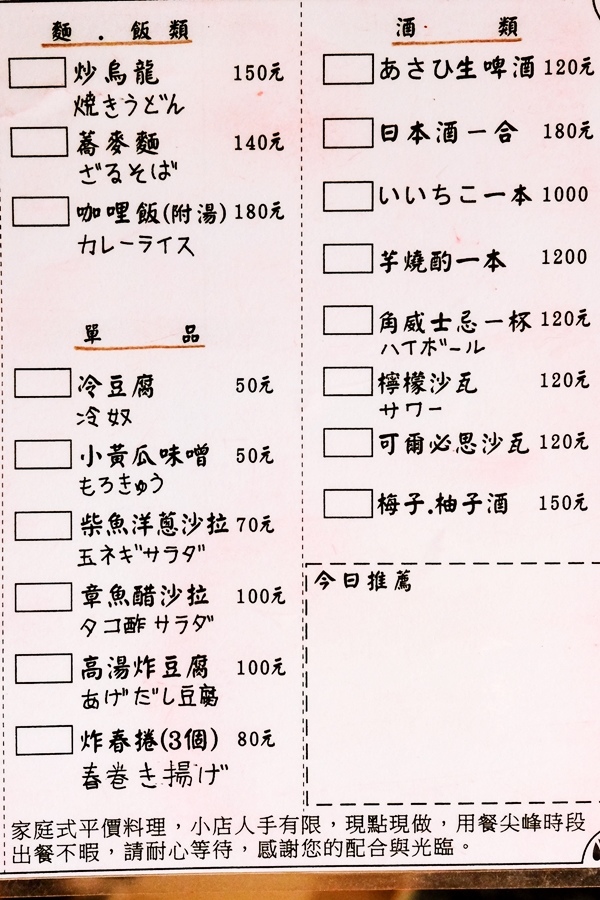 麵．飯類
炒烏龍 150元
焼きうどん
蕎麥麵 140元
ざるそば
咖哩飯(附湯) 180元
カレーライス
單品
冷豆腐 50元
冷奴
小黃瓜味噌 50元
もろきゅう
柴魚洋蔥沙拉 70元
玉ネギサラダ
章魚醋沙拉 100元
タコ酢サラダ
高湯炸豆腐 100元
あげだし豆腐
炸春捲(3個) 80元
春巻き揚げ
酒類
あさひ生啤酒 120元
日本酒一合 180元
いいちこ一本 1000
芋燒酌一本 1200
角威士忌一杯 120元
ハイボール
檸檬沙瓦 120元
サワー
可爾必思沙瓦 120元
梅子.柚子酒 150元
今日推薦
家庭式平價料理，小店人手有限，現點現做，用餐尖峰時段
出餐不暇，請耐心等待，感謝您的配合與光臨。